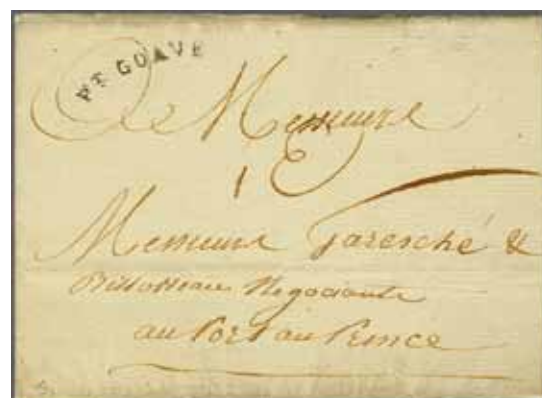 PT GOAVE
A Messieurs
1
Messieurs Garesché &
Billoteau Negociants
au Port au Prince